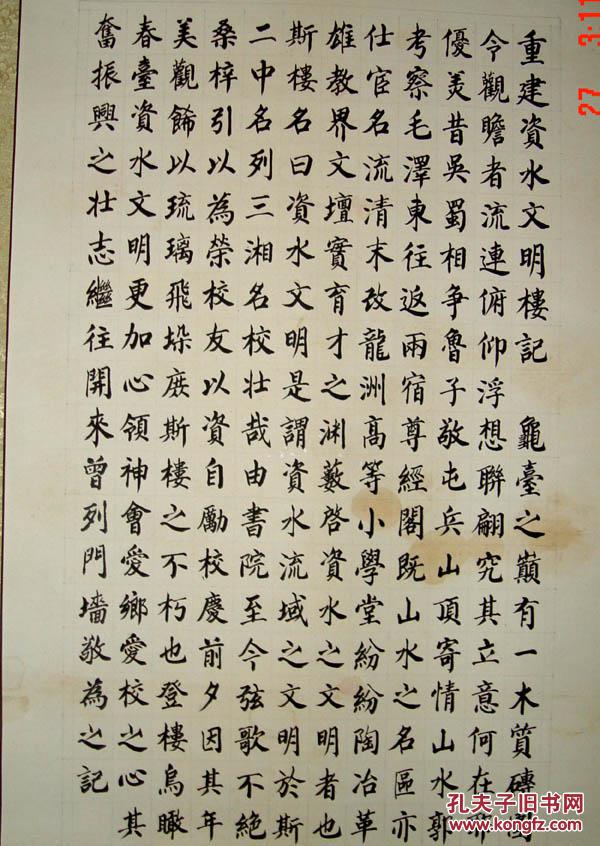 重建資水文明樓記　龜臺之巔有一木質磚
令觀瞻者流連俯仰浮想聯翩究其立意何在耶
優美昔吳蜀相爭魯子敬屯兵山頂寄情山水郭
考察毛澤東往返兩宿尊經閣既山水之名區亦
仕宦名流清末改龍洲高等小學堂紛紛陶冶革
雄教界文壇實育才之淵藪啓資水之文明者也
斯樓名曰資水文明是謂資水流域之文明於斯
二中名列三湘名校壯哉由書院至今弦歌不絕
桑梓引以為榮校友以資自勵校慶前夕因其年
美觀餙以琉璃飛垛庶斯樓之不朽也登樓鳥瞰
春臺資水文明更加心領神會愛鄉愛校之心其
奮振興之壯志繼往開來曾列門墻敬為之記
27 3:11
孔夫子旧书网
www.kongfz.com